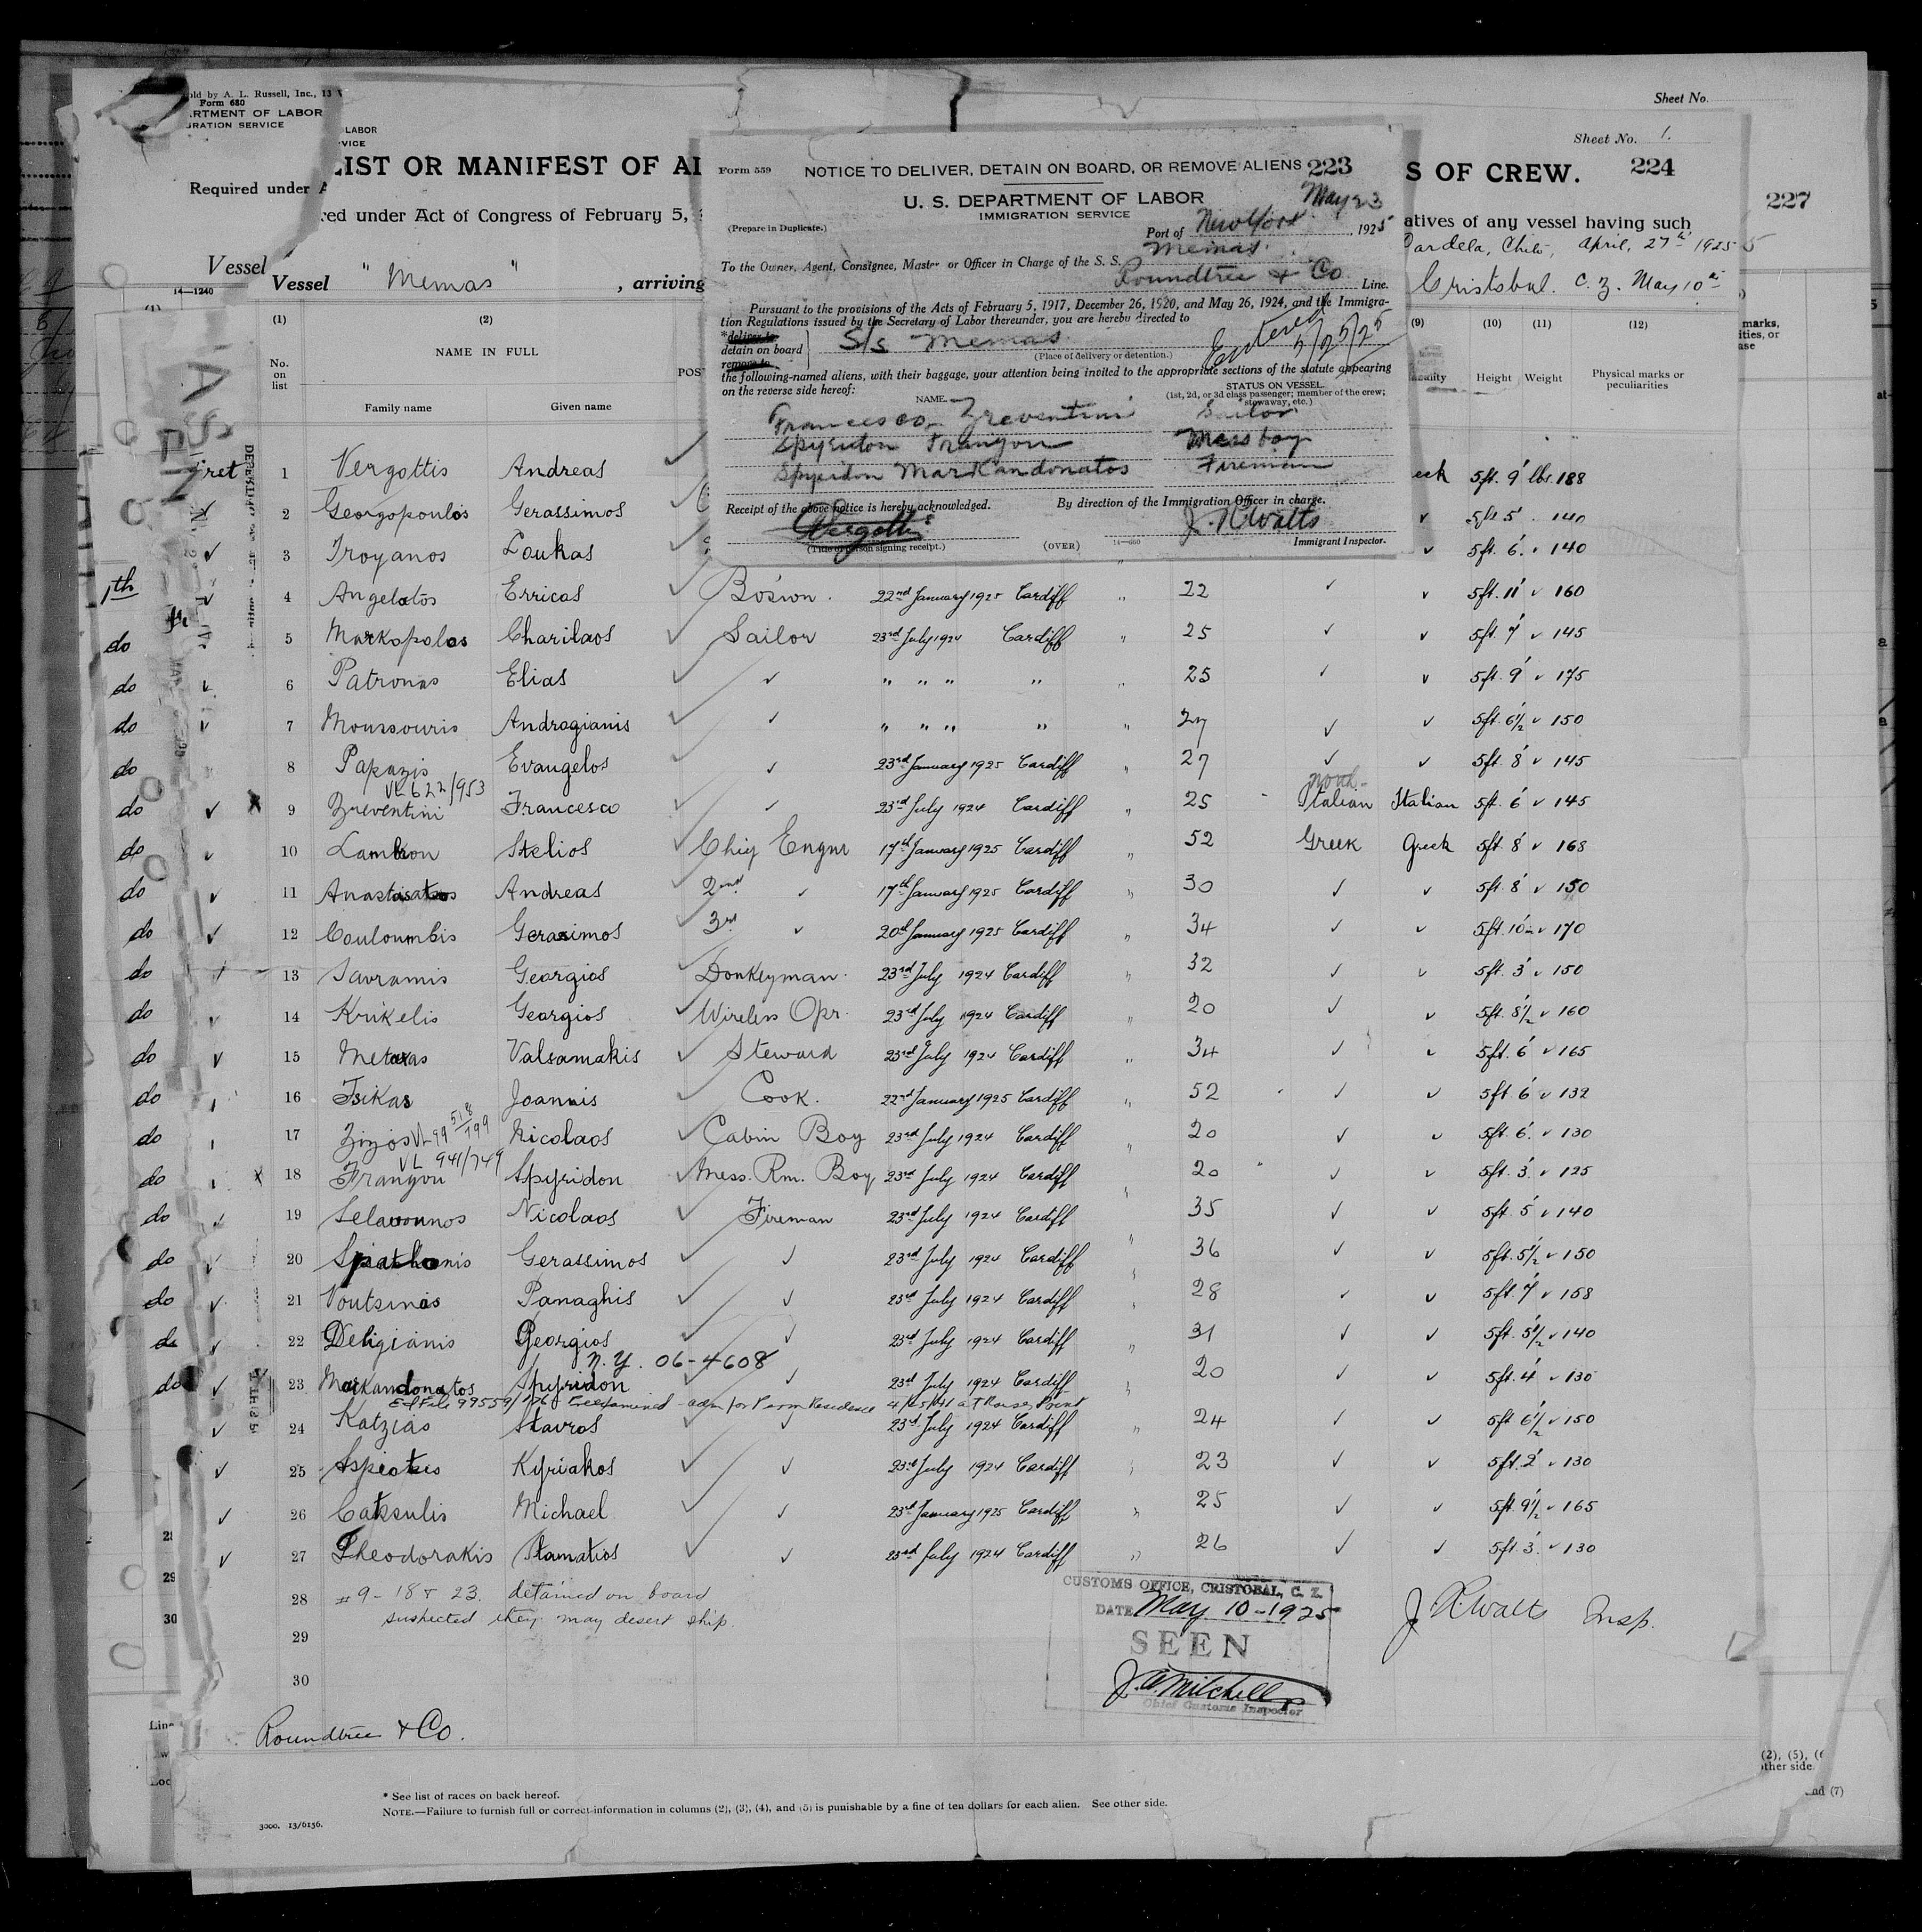 Sheet No.
old by A. L. Russell, Inc., 13
Form 680
ARTMENT OF LABOR
GRATION SERVICE
LABOR
VICE
Sheet No. 1.
LIST OR MANIFEST OF AL
S OF CREW.
224
227
Required under A
red under Act of Congress of February 5,
atives of any vessel having such
Chile, April, 27th 1925
Vessel
Vessel "Memas" , arriving
Cristobal. C. Z. May 10th
14—1240
Form 559
NOTICE TO DELIVER, DETAIN ON BOARD, OR REMOVE ALIENS
223
U. S. DEPARTMENT OF LABOR
IMMIGRATION SERVICE
May 23
(Prepare in Duplicate.)
Port of New York , 1925
Memas.
To the Owner, Agent, Consignee, Master or Officer in Charge of the S. S.
Roundtree & Co Line.
Pursuant to the provisions of the Acts of February 5, 1917, December 26, 1920, and May 26, 1924, and the Immigra-
tion Regulations issued by the Secretary of Labor thereunder, you are hereby directed to
*deliver to
detain on board
remove to
S/s Memas.
(Place of delivery or detention.)
Entered 5/25/25
the following-named aliens, with their baggage, your attention being invited to the appropriate sections of the statute appearing
on the reverse side hereof:
STATUS ON VESSEL.
NAME.
(1st, 2d, or 3d class passenger; member of the crew; stowaway, etc.)
Francesco Zreventini Sailor
Spyridon Frangou Mess boy
Spyridon Markandonatos Fireman
Receipt of the above notice is hereby acknowledged.
By direction of the Immigration Officer in charge.
Vergottis
J. R. Watts
(Title of person signing receipt.)
(OVER)
14—660
Immigrant Inspector.
(1) (2) (9) (10) (11) (12)
No. on list
NAME IN FULL
Family name Given name
POS
Height Weight Physical marks or peculiarities
marks,
ities, or
ase
1 Vergottis Andreas eek 5ft. 9' lbs. 188
2 Georgopoulos Gerassimos 5ft 5' 140
3 Troyanos Loukas 5ft. 6' 140
4 Angelatos Erricos Boswn. 22nd January 1925 Cardiff " 22 ✓ ✓ 5ft. 11' ✓ 160
do 5 Markopolos Charilaos Sailor 23rd July 1924 Cardiff " 25 ✓ ✓ 5ft. 7' ✓ 145
do 6 Patronas Elias ✓ " " " " " 25 ✓ ✓ 5ft. 9' ✓ 175
do 7 Moussouris Andragianis ✓ " " " " " 27 ✓ ✓ 5ft. 6½ ✓ 150
do 8 Papazis Evangelos ✓ 23rd January 1925 Cardiff " 27 ✓ ✓ 5ft. 8' ✓ 145
VL 622/953
do 9 Zreventini Francesco ✓ 23rd July 1924 Cardiff 25 Italian Italian 5ft. 6' ✓ 145
do 10 Lambrou Stelios Chief Engnr 17th January 1925 Cardiff " 52 Greek Greek 5ft. 8' ✓ 168
do 11 Anastasatos Andreas 2nd ✓ 17th January 1925 Cardiff " 30 ✓ ✓ 5ft. 8' ✓ 150
do 12 Couloumbis Gerasimos 3rd ✓ 20th January 1925 Cardiff " 34 ✓ ✓ 5ft. 10 ✓ 170
do 13 Savramis Georgios Donkeyman. 23rd July 1924 Cardiff " 32 ✓ ✓ 5ft. 3' ✓ 150
do 14 Krikelis Georgios Wireless Opr. 23rd July 1924 Cardiff " 20 ✓ ✓ 5ft. 8½ ✓ 160
do 15 Metaxas Valsamakis Steward 23rd July 1924 Cardiff " 34 ✓ ✓ 5ft. 6' ✓ 165
do 16 Tsikas Joannis Cook. 22nd January 1925 Cardiff " 52 ✓ ✓ 5ft 6' ✓ 132
do 17 Zizos Nicolaos Cabin Boy 23rd July 1924 Cardiff " 20 ✓ ✓ 5ft. 6'. ✓ 130
VL 941/749
do 18 Frangou Spyridon Mess. Rm. Boy 23rd July 1924 Cardiff " 20 ✓ ✓ 5ft. 3'. ✓ 125
do 19 Selavounos Nicolaos Fireman 23rd July 1924 Cardiff 35 ✓ ✓ 5ft. 5' ✓ 140
do 20 Spathonis Gerassimos ✓ 23rd July 1924 Cardiff " 36 ✓ ✓ 5ft. 5½ ✓ 150
do 21 Voutsinas Panaghis ✓ 23rd July 1924 Cardiff " 28 ✓ ✓ 5ft. 7' ✓ 158
do 22 Deligianis Georgios ✓ 23rd July 1924 Cardiff " 31 ✓ ✓ 5ft. 5½ ✓ 140
N.Y. 06-4608
do 23 Markandonatos Spyridon ✓ 23rd July 1924 Cardiff " 20 ✓ ✓ 5ft. 4' ✓ 130
Preexamined - adm for Perm Residence at Rouses Point
24 Katzias Stavros ✓ 23rd July 1924 Cardiff " 24 ✓ ✓ 5ft 6½ ✓ 150
25 Aspiotis Kyriakos ✓ 23rd July 1924 Cardiff " 23 ✓ ✓ 5ft. 2' ✓ 130
26 Catsulis Michael ✓ 23rd January 1925 Cardiff " 25 ✓ ✓ 5ft. 9½ ✓ 165
27 Theodorakis Stamatios ✓ 23rd July 1924 Cardiff " 26 ✓ ✓ 5ft. 3'. ✓ 130
28 #9 - 18 & 23. detained on board
suspected they may desert ship.
29
30
J. R. Watts Insp.
CUSTOMS OFFICE, CRISTOBAL, C. Z.
DATE May 10-1925
SEEN
J. W. Mitchell
Chief Customs Inspector
Roundtree & Co.
* See list of races on back hereof.
NOTE.—Failure to furnish full or correct information in columns (2), (3), (4), and (5) is punishable by a fine of ten dollars for each alien. See other side.
3000. 13/6156.
(2), (5), (6
other side.
and (7)